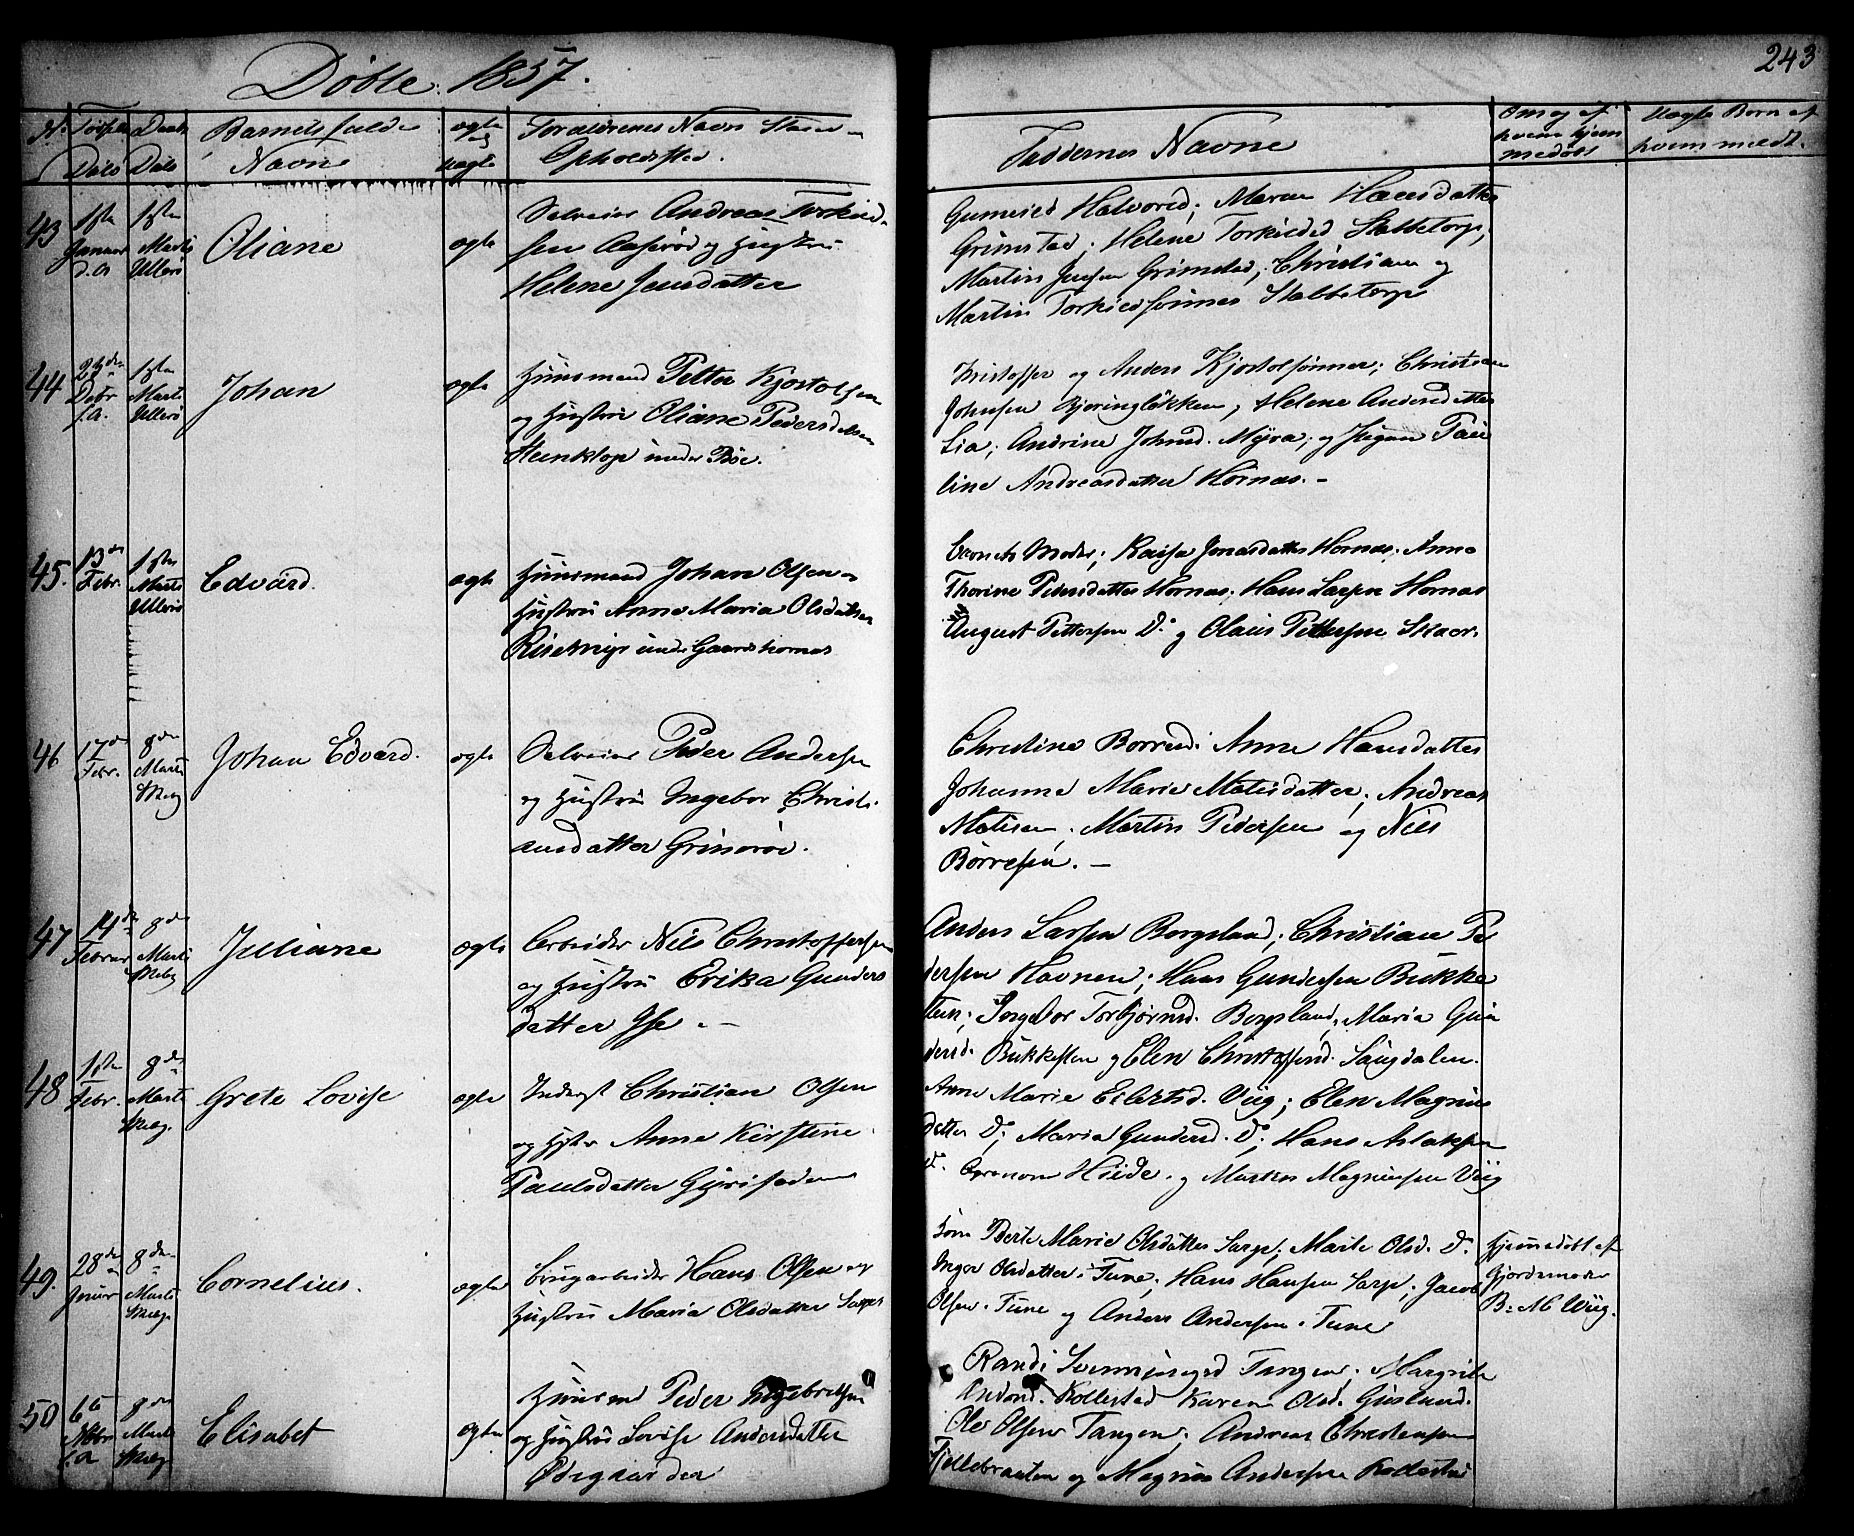 Døbte. 1857.
243
N. Fødsels Daabs Barnets fulde ægte Forældrenes Navn Stand
Dato Dato Navn og uægte Opholdssted.
Faddernes Navne
Om og af hvem hjemmedøbt
Uægte Børn af hvem meldt.
43 1ste Januar d. A 1ste Marts Ullerø
Oliane
ægte
Selveier Andreas Torkild-
sen Aaserød og Hustru
Helene Jensdatter
Gunnild Halvorsd; Maren Hansdatter
Grimstad; Helene Torkildsd Stabetorp;
Martin Jensen Grimstad; Christian og
Martin Torkildsønner Stabbetorp
44 Decbr f.A. 1ste Marts Ullerø
Johan
ægte
Huusmand Petter Kjostolsen
og Hustru Oliane Pedersdatter
under Bøe.
Kristoffer og Anders Kjostolsønner; Christian
Johnsen Bjøringløkken, Helene Andersdatter
Lia; Andrine Johnsd. Myra; og Pigen Pau
line Andreasdatter Hornæs. -
45. 13de Febr. 1ste Marts Ullerø
Edvard.
ægte
Huusmand Johan Olsen
Hustru Anne Maria Olsdatter
under Gaard Hornæs
Barnets Moder; Kaisa Jonasdatter Hornæs; Anne
Thorine Pedersdatter Hornæs; Hans Larsen Hornæs
August Pettersen Do og Olaus Pettersen Skaor.
46 17de Febr. 8de Marts Skieb
Johan Edvard.
ægte
Selveier Peder Andersen
og Hustru Ingebor Christi-
ansdatter Grimsrød.
Christine Borresd; Anne Hansdatter
Johanne Marie Matisdatter; Andreas
Matisen; Martin Pedersen og Nils
Børresen. -
47 14de Februar 8de Marts Skieb
Juliane
ægte
Arbeider Nils Christoffersen
og Hustru Erika Gunders
datter Ise. -
Anders Larsen Borgeland; Christian Pe
dersen Havnen; Hans Gundersen Bukke
sten; Ingebor Torbjørnsd. Borgeland; Maria Gun
dersd. Bukkesten og Elen Christoffersd. Laugdalen.
48 1ste Febr. 8de Marts Skieb.
Grete Lovise
ægte
Inderst Christian Olsen
og Hustr Anne Kirstine
Paulsdatter
Anne Marie Eilertsd. Viig; Elen Magnus
datter Do; Maria Gundersd. Do; Hans Aslaksen
Do. Hiide. og Martin Magnussen Viig
49. 28de Januar 8de Marts Skieb.
Cornelius.
ægte
Brugarbeider Hans Olsen og
Hustru Maria Olsdatter Sarpen
Berte Marie Olsdatter Sarp; Marte Olsd. Do.
Inger Olsdatter i Tune; Hans Hansen Sarp; Jacob
Olsen i Tune og Anders Andersen i Tune
Hjemmedøbt af
Gjordemoder
B: M Wiig.
50 6te f.A 8de Marts Skieb
Elisabet
ægte
Huusmd Peder Engebretsen
og Hustru Lovise Andersdatter
Ødegaarden
Randi Tangen; Margrete
Andersd. Kollestad Karen Olsd. Guslund.
Ole Olsen Tangen; Andreas Christensen
Fjellebraaten og Magnus Andersen Kollestad